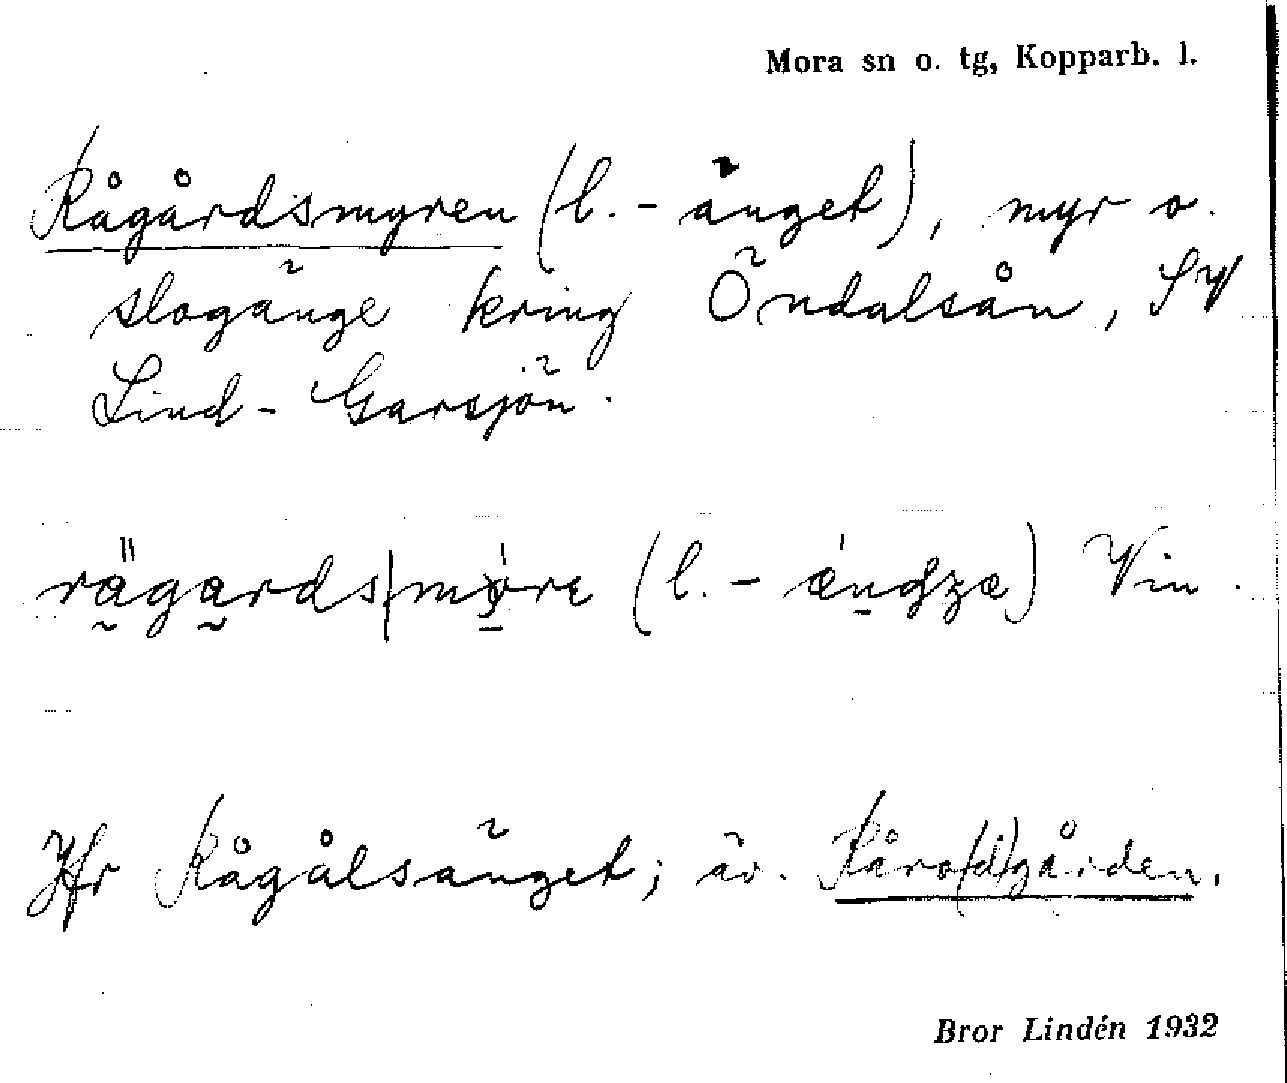 Mora sn o. tg, Kopparb. l.
Rågårdsmyren (l. - änget), myr o.
slogänge kring Öndalsån, SV
Lind - Garsjön.
rägards|möre (l. - ængʒe) Vin.
Jfr Rågålsänget; äv. Råro(d)gården.
Bror Lindén 1932